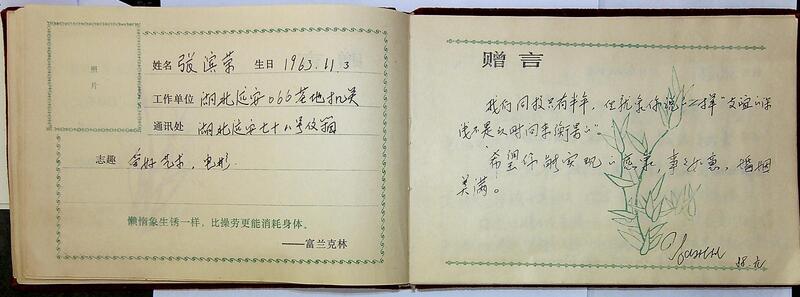 照片
姓名 张滨荣 生日 1963.11.3
工作单位 湖北远安066基地机关
通讯处 湖北远安七十八号信箱
志趣 爱好艺术,电影
懒惰象生锈一样,比操劳更能消耗身体。
——富兰克林
赠言
我们同校只有半年,但就象你说的一样"友谊的深
浅不是以时间来衡量的"。
希望你能实现的愿，事如意，婚姻
美满。